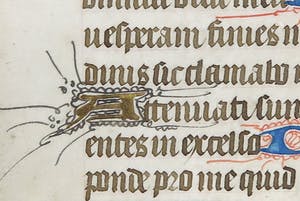 uesperam finies m
dinis sic clamabo m
Attenuati sun
entes in excelso
ponde pro me quid